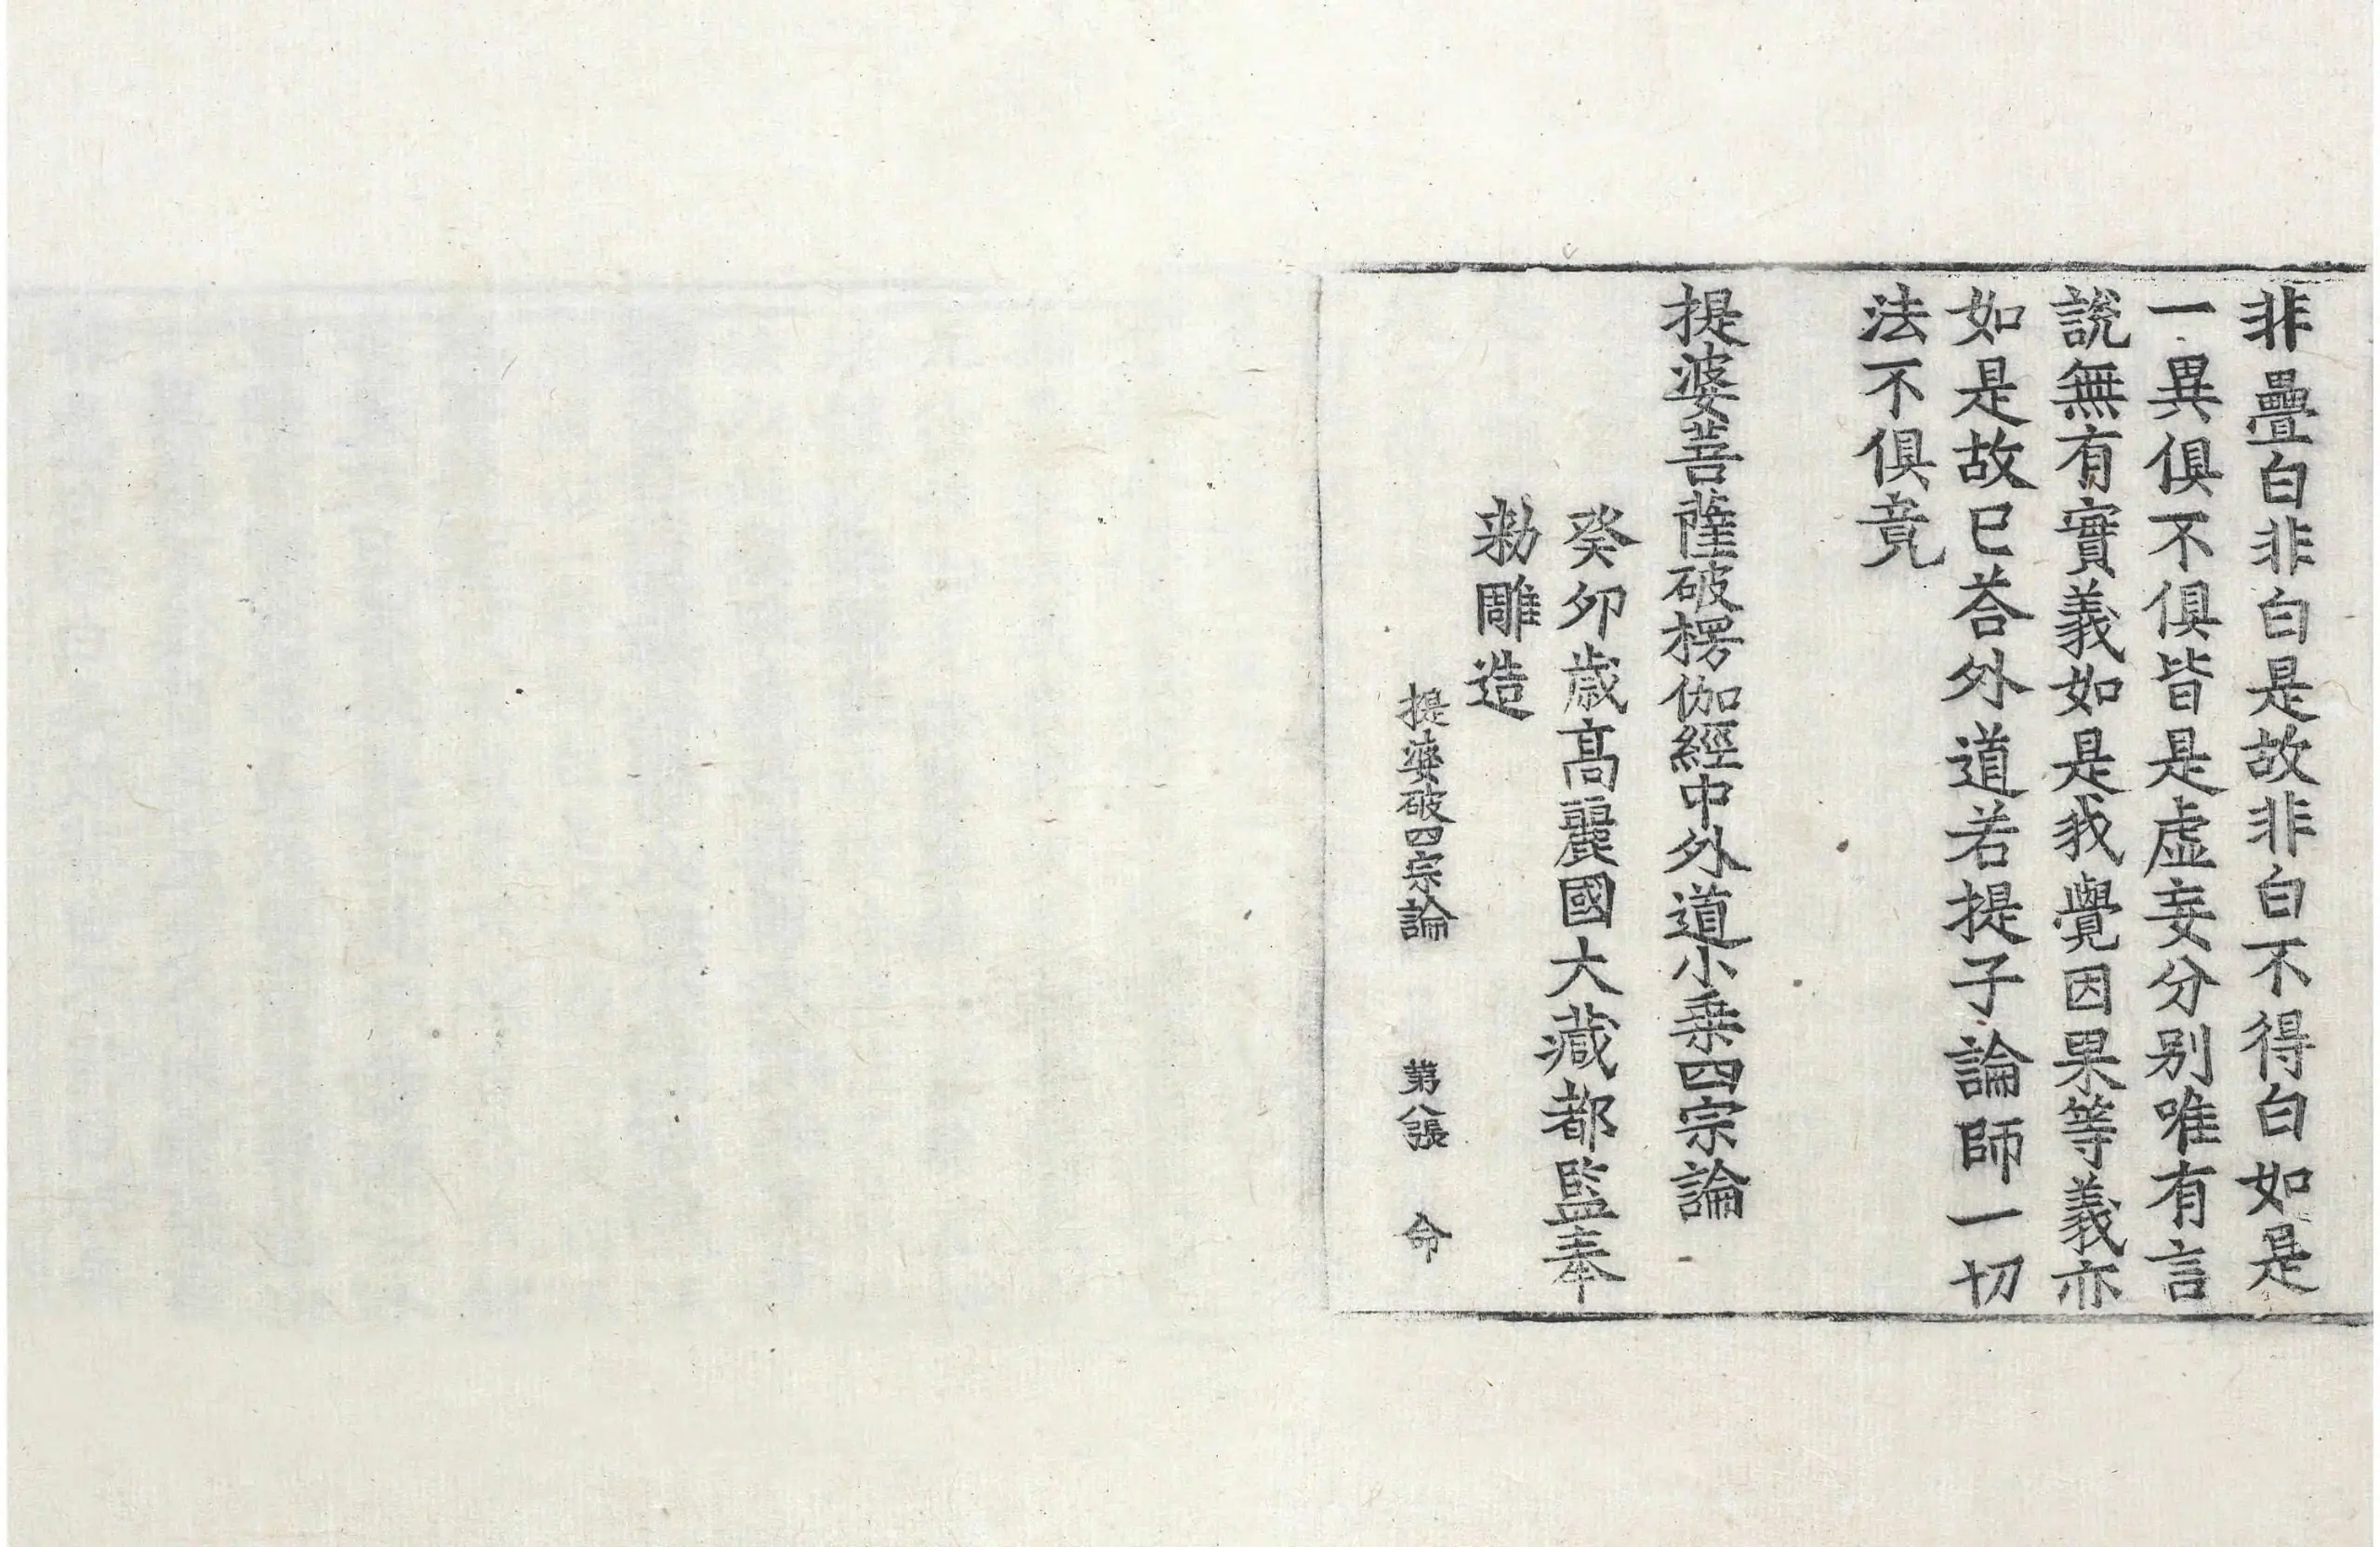 非疊白非白是故非白不得白如是
一異俱不俱皆是虛妄分別唯有言
說無有實義如是我覺因果等義亦
如是故已荅外道若提子論師一切
法不俱竟
提婆菩薩破楞伽經中外道小乗四宗論
癸卯歲高麗國大藏都監奉
勑雕造
提婆破四宗論 第八張 命